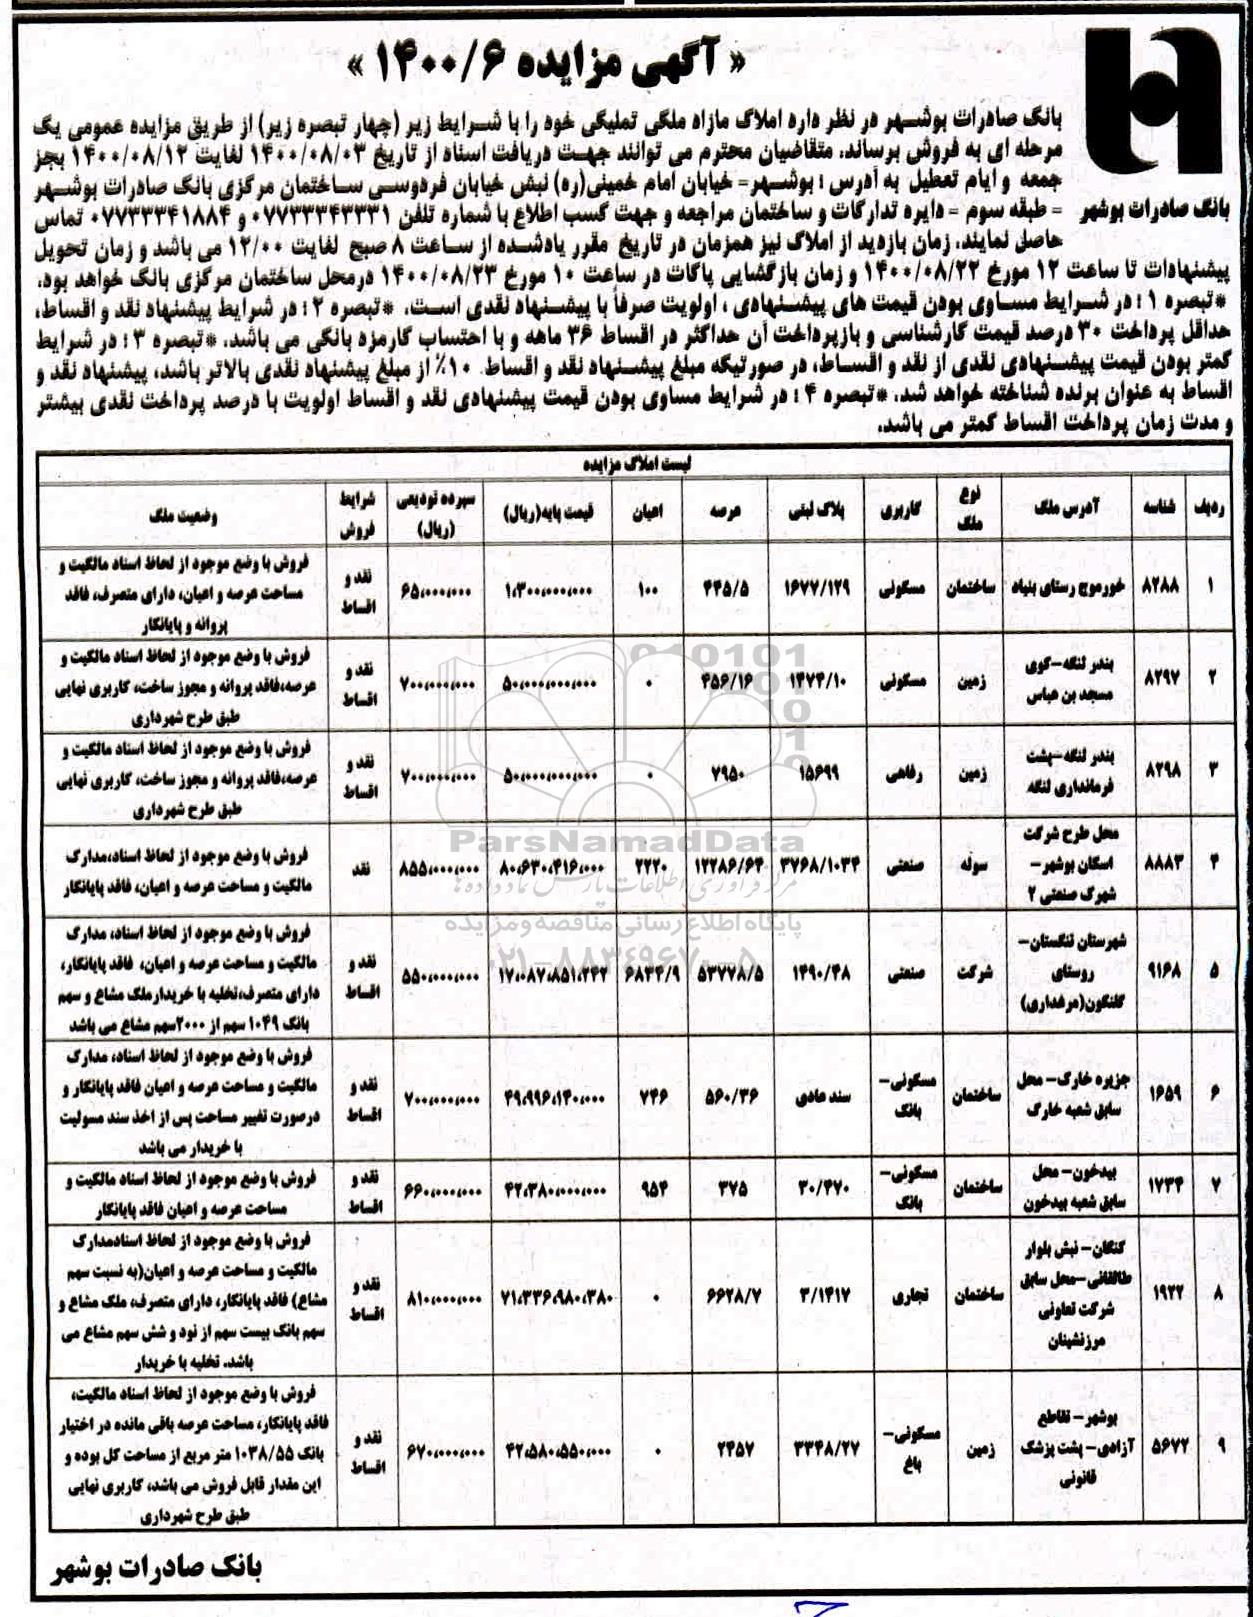 « آگهی مزایده ۱۴۰۰/۶ »
بانک صادرات بوشهر
بانک صادرات بوشـهر در نظر داره املاک مازاد ملکی تملیکی خود را با شـرایط زیر (چهار تبصره زیر) از طریق مزایده عمومی یک
مرحله ای به فروش برساند، متقاضیان محترم می توانند جهـت دریافت اسناد از تاریخ ۱۴۰۰/۰۸/۰۳ لغایت ۱۴۰۰/۰۸/۱۲ بجز
جمعه و ایام تعطیل به آدرس : بوشـهر- خیابان امام خمینی(ره) نبش خیابان فردوسـی سـاختمان مرکزی بانک صادرات بوشـهر
- طبقه سوم - دایره تدارکات و ساختمان مراجعه و جهت کسب اطلاع با شماره تلفن ۰۷۷۳۳۳۴۳۳۳۱ و ۰۷۷۳۳۳۴۱۸۸۴ تماس
حاصل نمایند. زمان بازدید از املاک نیز همزمان در تاریخ مقرر یادشـده از سـاعت ۸ صبح لغایت ۱۲/۰۰ می باشد و زمان تحویل
پیشنهادات تا ساعت ۱۲ مورخ ۱۴۰۰/۰۸/۲۲ و زمان بازگشایی پاکات در ساعت ۱۰ مورخ ۱۴۰۰/۰۸/۲۳ درمحل ساختمان مرکزی بانک خواهد بود.
*تبصره ۱ : در شـرایط مسـاوی بودن قیمت های پیشـنهادی ، اولویت صرفاً با پیشـنهاد نقدی اسـت. *تبصره ۲ : در شرایط پیشنهاد نقد و اقساط،
حداقل پرداخت ۳۰ درصد قیمت کارشناسی و بازپرداخت آن حداکثر در اقساط ۳۶ ماهه و با احتساب کارمزد بانکی می باشد. *تبصره ۳ : در شرایط
کمتر بودن قیمت پیشـنهادی نقدی از نقد و اقسـاط، در صورتیکه مبلغ پیشـنهاد نقد و اقساط ۱۰٪ از مبلغ پیشنهاد نقدی بالاتر باشد، پیشنهاد نقد و
اقساط به عنوان برنده شناخته خواهد شد. *تبصره ۴ : در شرایط مساوی بودن قیمت پیشنهادی نقد و اقساط اولویت با درصد پرداخت نقدی بیشتر
و مدت زمان پرداخت اقساط کمتر می باشد.
لیست املاک مزایده
ردیف شناسه آدرس ملک نوع ملک کاربری پلاک ثبتی عرصه اعیان قیمت پایه(ریال) سپرده تودیعی (ریال) شرایط فروش وضعیت ملک
۱ ۸۲۸۸ خورموج رستای بنیاد ساختمان مسکونی ۱۶۷۷/۱۲۹ ۴۴۵/۵ ۱۰۰ ۱،۳۰۰،۰۰۰،۰۰۰ ۶۵،۰۰۰،۰۰۰ نقد و اقساط فروش با وضع موجود از لحاظ اسناد مالکیت و
مساحت عرصه و اعیان، دارای متصرف، فاقد
پروانه و پایانکار
۲ ۸۲۹۷ بندر لنگه-کوی مسجد بن عباس زمین مسکونی ۱۴۷۴/۱۰ ۴۵۶/۱۶ ۰ ۵۰،۰۰۰،۰۰۰،۰۰۰ ۷۰۰،۰۰۰،۰۰۰ نقد و اقساط فروش با وضع موجود از لحاظ اسناد مالکیت و
عرصه،فاقد پروانه و مجوز ساخت، کاربری نهایی
طبق طرح شهرداری
۳ ۸۲۹۸ بندر لنگه-پشت فرمانداری لنگه زمین رفاهی ۱۵۶۹۹ ۷۹۵۰ ۰ ۵۰،۰۰۰،۰۰۰،۰۰۰ ۷۰۰،۰۰۰،۰۰۰ نقد و اقساط فروش با وضع موجود از لحاظ اسناد مالکیت و
عرصه،فاقد پروانه و مجوز ساخت، کاربری نهایی
طبق طرح شهرداری
۴ ۸۸۸۳ محل طرح شرکت اسکان بوشهر- شهرک صنعتی ۲ سوله صنعتی ۳۷۶۸/۱۰۳۴ ۱۲۲۸۶/۶۴ ۲۲۲۰ ۸۰،۶۳۰،۴۱۶،۰۰۰ ۸۵۵،۰۰۰،۰۰۰ نقد فروش با وضع موجود از لحاظ اسناد،مدارک
مالکیت و مساحت عرصه و اعیان، فاقد پایانکار
۵ ۹۱۶۸ شهرستان تنگستان- روستای گلنگون(مرغداری) شرکت صنعتی ۱۴۹۰/۴۸ ۵۳۷۷۸/۵ ۶۸۴۴/۹ ۱۷،۰۸۷،۸۵۱،۲۴۲ ۵۵۰،۰۰۰،۰۰۰ نقد و اقساط فروش با وضع موجود از لحاظ اسناد، مدارک
مالکیت و مساحت عرصه و اعیان، فاقد پایانکار،
دارای متصرف،تخلیه با خریدار،ملک مشاع و سهم
بانک ۱۰۴۹ سهم از ۲۰۰۰سهم مشاع می باشد
۶ ۱۶۵۹ جزیره خارک- محل سابق شعبه خارک ساختمان مسکونی- بانک سند عادی ۵۶۰/۳۶ ۷۴۶ ۴۹،۹۹۶،۱۴۰،۰۰۰ ۷۰۰،۰۰۰،۰۰۰ نقد و اقساط فروش با وضع موجود از لحاظ اسناد، مدارک
مالکیت و مساحت عرصه و اعیان فاقد پایانکار و
درصورت تغییر مساحت پس از اخذ سند مسولیت
با خریدار می باشد
۷ ۱۷۳۴ بیدخون- محل سابق شعبه بیدخون ساختمان مسکونی- بانک ۳۰/۴۷۰ ۳۷۵ ۹۵۴ ۴۲،۳۸۰،۰۰۰،۰۰۰ ۶۶۰،۰۰۰،۰۰۰ نقد و اقساط فروش با وضع موجود از لحاظ اسناد مالکیت و
مساحت عرصه و اعیان فاقد پایانکار
۸ ۱۹۲۲ کنگان- نبش بلوار طالقانی-محل سابق شرکت تعاونی مرزنشینان ساختمان تجاری ۳/۱۴۱۷ ۶۶۲۸/۷ ۰ ۷۱،۳۳۶،۹۸۰،۳۸۰ ۸۱۰،۰۰۰،۰۰۰ نقد و اقساط فروش با وضع موجود از لحاظ اسنادمدارک
مالکیت و مساحت عرصه و اعیان(به نسبت سهم
مشاع) فاقد پایانکار، دارای متصرف، ملک مشاع و
سهم بانک بیست سهم از نود و شش سهم مشاع می
باشد. تخلیه با خریدار
۹ ۵۶۷۲ بوشهر- تقاطع آزادی- پشت پزشک قانونی زمین مسکونی- باغ ۳۳۴۸/۲۷ ۲۴۵۷ ۰ ۴۲،۵۸۰،۵۵۰،۰۰۰ ۶۷۰،۰۰۰،۰۰۰ نقد و اقساط فروش با وضع موجود از لحاظ اسناد مالکیت،
فاقد پایانکار، مساحت عرصه باقی مانده در اختیار
بانک ۱۰۳۸/۵۵ متر مربع از مساحت کل بوده و
این مقدار قابل فروش می باشد، کاربری نهایی
طبق طرح شهرداری
بانک صادرات بوشهر
ParsNamadData
مرکز فرآوری اطلاعات پارس نماد داده ها
پایگاه اطلاع رسانی مناقصه و مزایده
۰۲۱-۸۸۳۴۹۶۷۰-۵